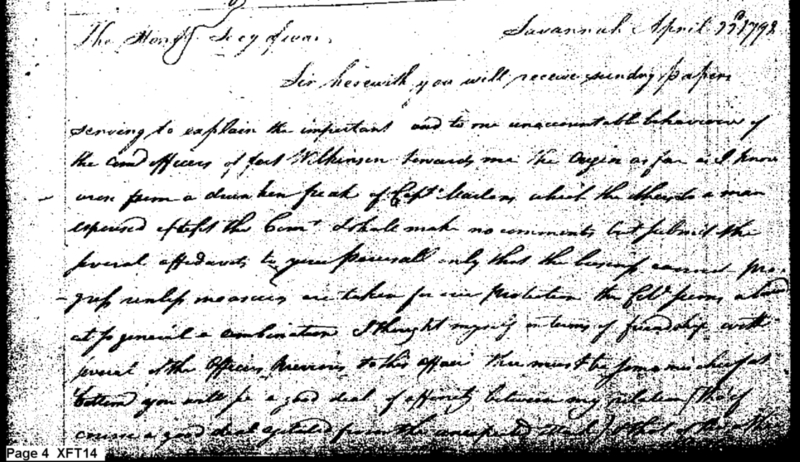 The Honble Secy of war.
Savannah April 22d 1798
Sir herewith you will receive sundry papers
serving to explain the important and to me unaccountable behaviour of
the Comd officers of fort Wilkinson towards me the origin as far as I know
arose from a drunken freak of Capt. which the others to a man
espoused except the Comt. I shall make no comments but submit the
several affidavits to your perusall only that the business cannot pro-
-gress unless measures are taken for our protection the Col. seems
at so general a combination I thought myself in terms of friendship with
several of the Officers previous to this affair there must be some mischief at
bottom you will see a good deal of affinity between my relation
a good deal from the
Page 4 XFT14